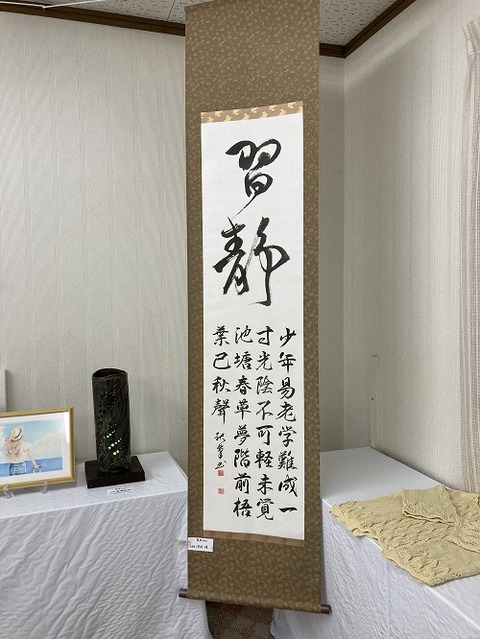 習静
少年易老学難成一
寸光陰不可軽未覚
池塘春草夢階前梧
葉已秋聲